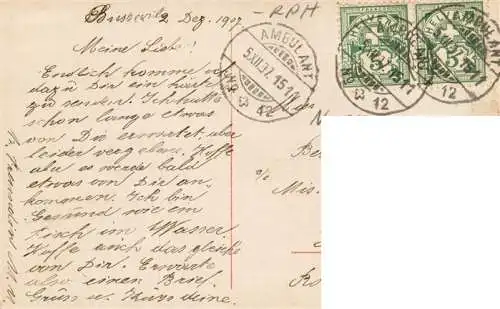 2. Dez. 1907
RPH
Meine Liebe!
Endlich komme ich
dazu Dir ein Karte
zu senden. Ich hatte
schon lange etwas
von Dir erwartet, aber
leider vergebens. Hoffe
aber es werde bald
etwas von Dir an-
kommen. Ich bin
Gesund wie ein
Fisch im Wasser.
Hoffe auch das gleiche
von Dir. Erwarte
also einen Brief.
Gruss u. Küss deine
AMBULANT
12
HELVETIA
5
AMBULANT
12
12
Mis.